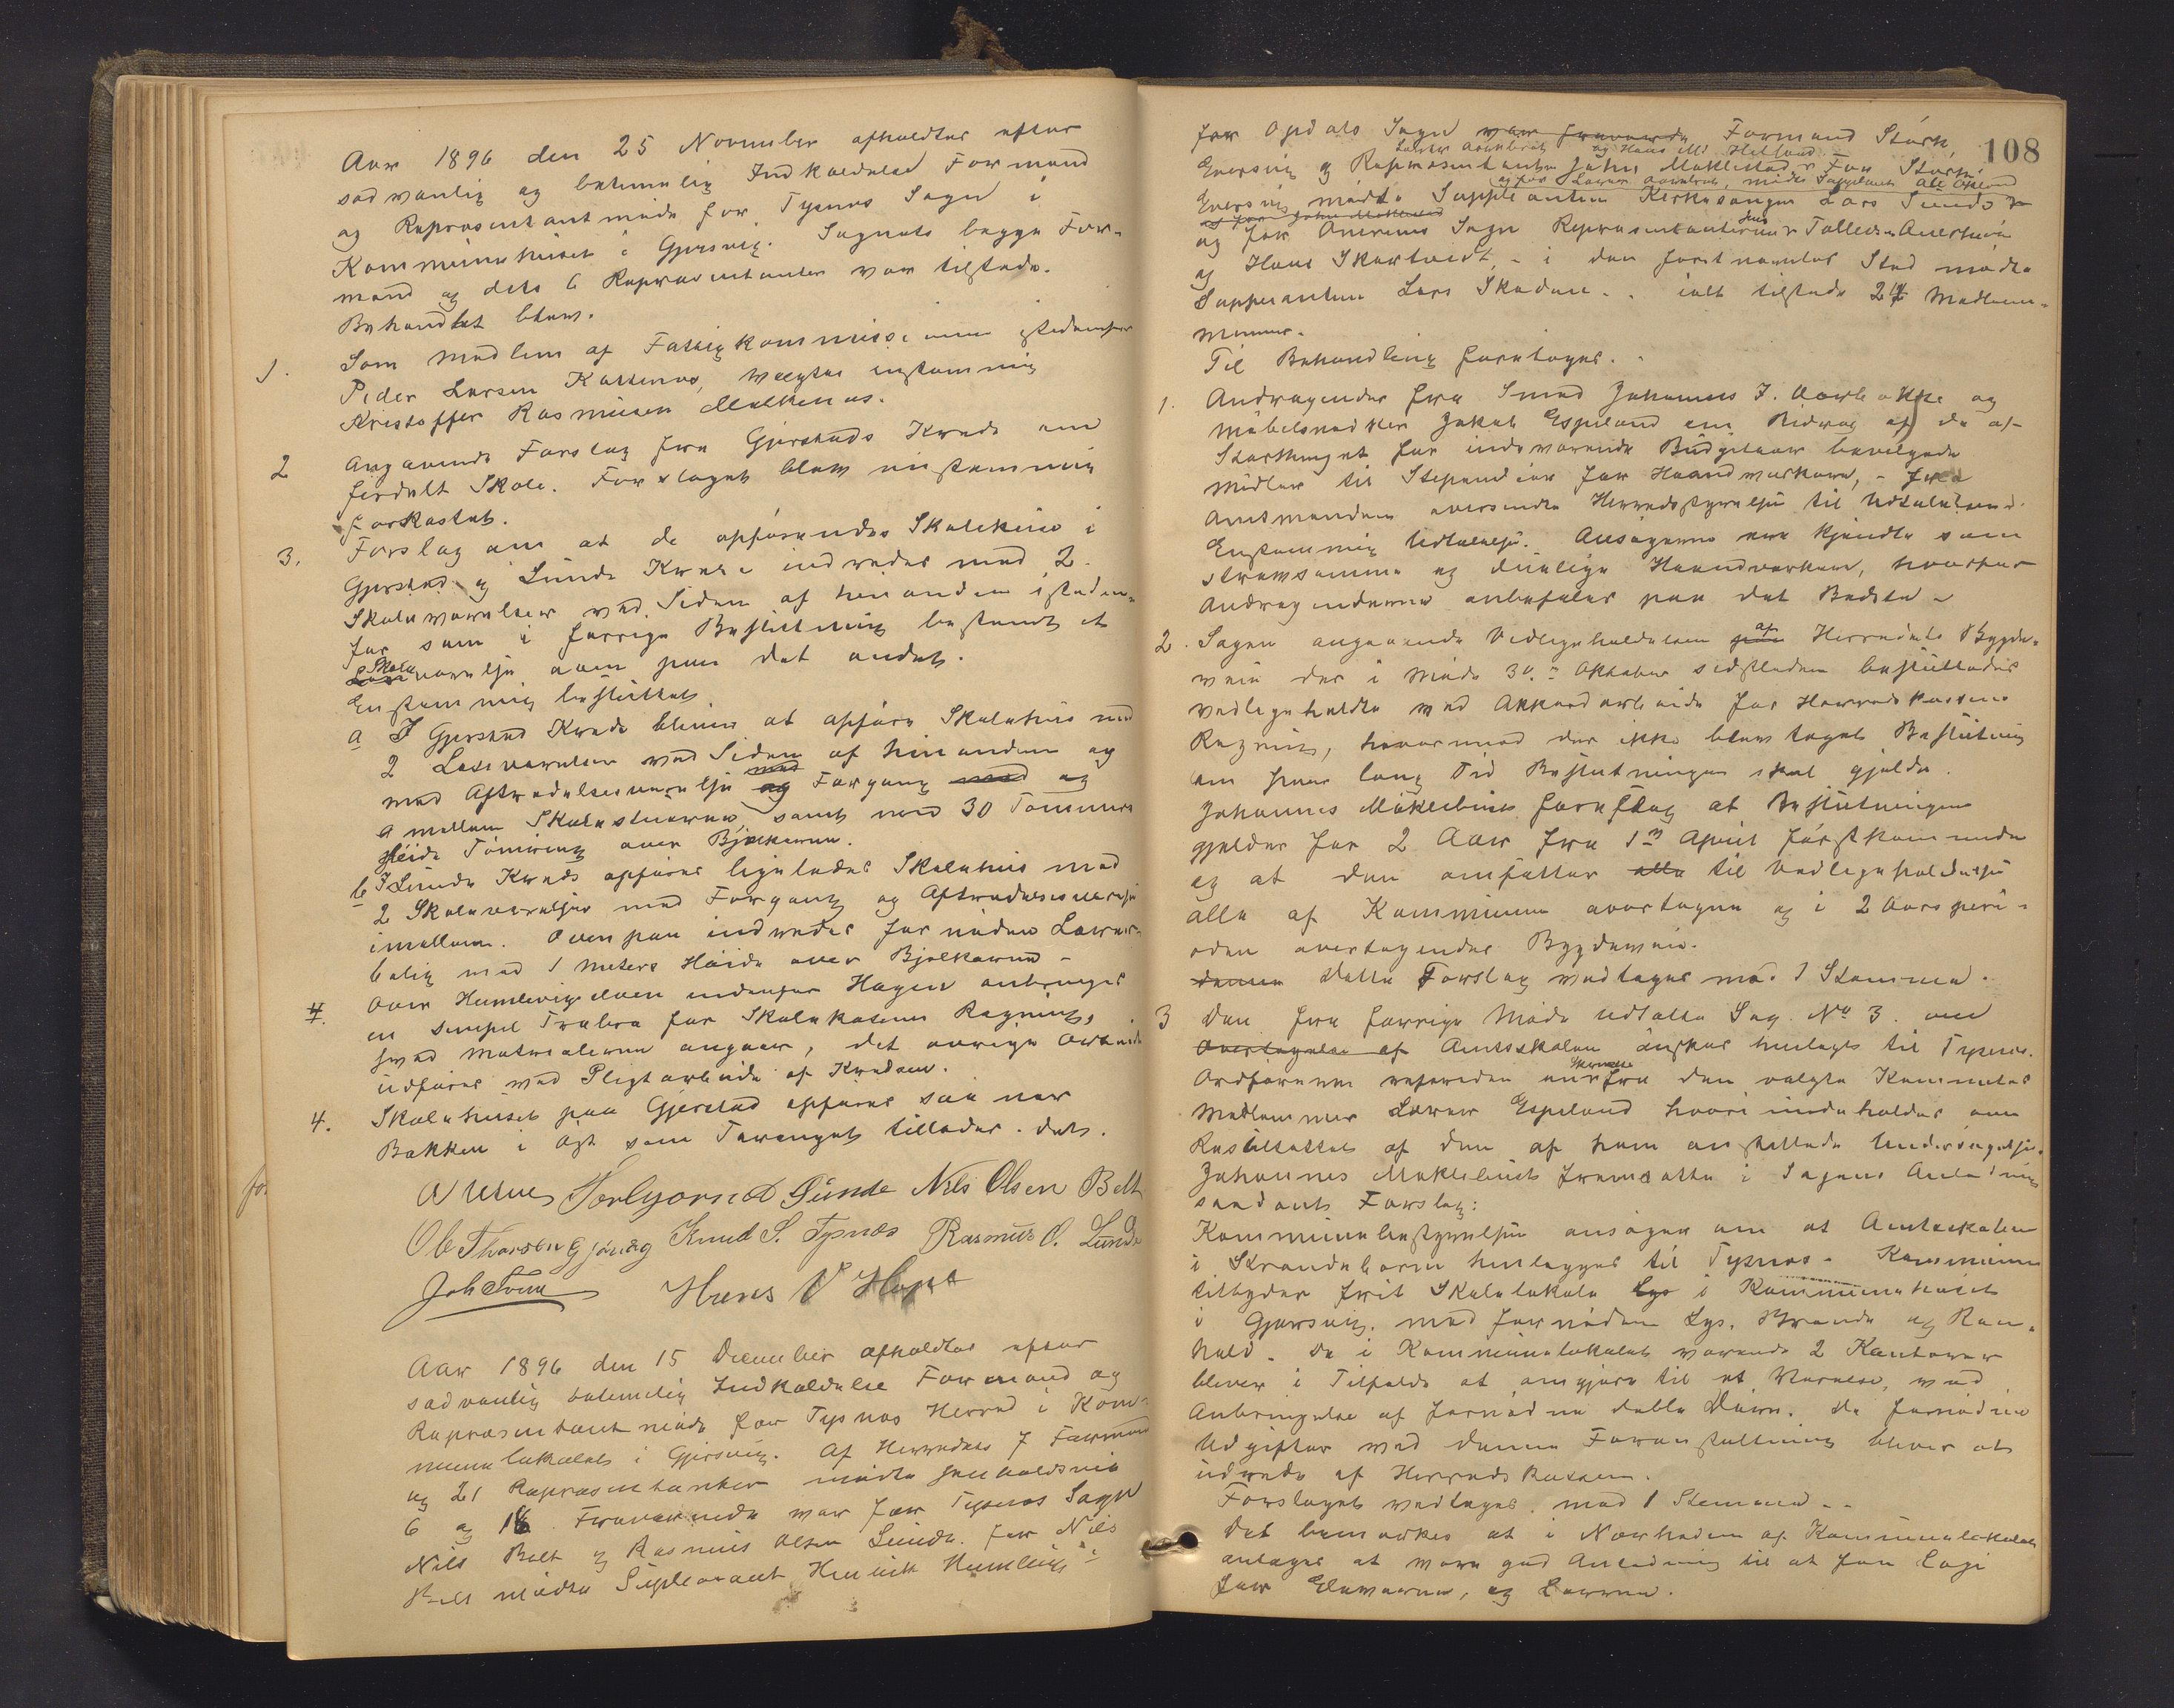 Aar 1896 den 25 November afholdtes efter
sædvanlig og betimelig Indkaldelse Formand
og Repræsentantmøde for Tysnes Sogn i
Kommunehuset i Gjersvig. Sognets begge For-
mænd og dets 6 Repræsentanter var tilstede.
Behandlet blev.
1. Som Medlem af Fattigkommissionen istedenfor
Peder Larsen Kattenes, valgtes enstemmig
Kristoffer Rasmusen Malkenes.
2 Angaaende Forslag fra Gjerstads Kreds om
firdelt Skole. Forslaget blev enstemmig
forkastet.
3. Forslag om at de opførendes Skolehuse i
Gjerstad og Lunde Kredse indredes med 2
Skoleværelser ved Siden af hinanden isteden-
for som i forrige Beslutning bestemt et
Skoleværelse oven paa det andet.
Enstemmig besluttet
a I Gjerstad Kreds bliver at opføre Skolehus med
2 Læseværelser ved Siden af hinanden og
med Aftrædelsesværelse med og Forgang med og
a mellem Skolestuerne, samt med 30 Tommers
Høide Tømring over Bjelkerne.
b I Lunde Kreds opføres ligeledes Skolehus med
2 Skoleværelser med Forgang og Aftrædelsesværelse
imellem. Ovenpaa indredes fornøden Lærer-
bolig med 1 Meters Høide over Bjelkerne -
4. Over Humlevigselven nedenfor Hagen anbringes
en simpel Træbro for Skolekassens Regning,
hvad Materialerne angaar, det øvrige Arbeide
udføres ved Pligtarbeide af Kredsen.
4. Skolehuset paa Gjerstad opføres saa nær
Bakken i Øst som Terrænget tillader det.
Torbjørn A Lunde Nils Olsen Belt
Ole Thorsen Gjøvåg Knud S. Tysnes Rasmus O. Lunde
Joh Tveit Hans V Hope
Aar 1896 den 15 December afholdtes efter
sædvanlig betimelig Indkaldelse Formand og
Repræsentantmøde for Tysnes Herred i Kom-
munelokalet i Gjersvig. Af Herredets 7 Formænd
og 21 Repræsentanter mødte henholdsvis
6 og 18 Fraværende var for Tysnes Sogn
Nils Belt og Rasmus Olsen Lunde. for Nils
Belt mødte Supleant Henrik Humlevig
108
for Opdals Sogn var fraværende Formand Størk
og Hans Md Helland
Eversvig og Repræsentanten John Møklestad. For Størk
og for Lærer Aarebrot, mødte Supleant Ole Opland
Eversvig mødte Suppleanten Kirkesanger Lars Sunde
og for John Møklestad
og for Aanerims Sogn Repræsentanterne Jens Tollevsen
og Hans Skartvedt, - i den førstnævntes Sted mødte
Suppeanten Lars Skaden. - ialt tilstede 24 Medlem-
mmer.
Til Behandling foretoges. -
1. Andragender fra Smed Johannes J. og
Møbelsnedker Jakob Espeland om Bidrag af de af
Storthinget for indeværende Budgetaar bevilgede
Midler til Stipendier for Haandværkere, - fra
Amtmanden oversendte Herredsstyrelsen til Udtalelse.
Enstemmig Udtalelse. Ansøgerne ere kjendte som
strævsomme og duelige Haandverkere, hvorfor
Andragenderne anbefales paa det Bedste -
2. Sagen angaaende Vedligeholdelsen af Herredets Bygde-
veie der i Møde 30. Oktober sidstleden besluttedes
vedligeholdte ved Akkordarbeide for Herredskassens
Regning, hvorimod der ikke blev taget Beslutning
om hvor lang Tid Beslutningen skal gjelde.
Johannes Møklebust foreslog at Beslutningen
gjelder for 2 Aar fra 1ste April førstkommende
og at den omfatter alle til Vedligeholdelse
alle af Kommunen overtagne og i 2 Aarsperi-
oden overtagendes Bygdeveie.
denne Dette Forslag vedtoges mod 1 Stemme.
3 Den fra forrige Møde udsatte Sag No 3. om
Overtagelse af Amtsskolen ønskes henlagt til Tysnes.
Ordføreren refererede en Skrivelse fra den valgte Kommites
Medlemmer Lærer Espeland hvori indeholdes om
Resultatet af den af ham anstillede Undersøgelse.
Johannes Møklebust fremsatte i Sagens Anledning
saadant Forslag:
Kommunebestyrelsen ansøger om at Amtsskolen
i Strandebarm henlægges til Tysnes - Kommunen
tilbyder frit Skolelokale Lys i Kommunehuset
i Gjersvig. med fornøden Lys. Brænde og Ren-
hold. De i Kommunelokalet værende 2 Kontorer
bliver i Tilfelde at omgjøre til et Værelse, ved
Anbringelse af fornødne doble Døre. De fornødne
Udgifter ved denne Foranstaltning bliver at
udrede af Herredskassen.
Forslaget vedtoges mod 1 Stemme. -
Det bemærkes at i Nærheden af Kommunelokalet
antages at være god Anledning til at faa Logi
for Eleverne, og Lærerne.